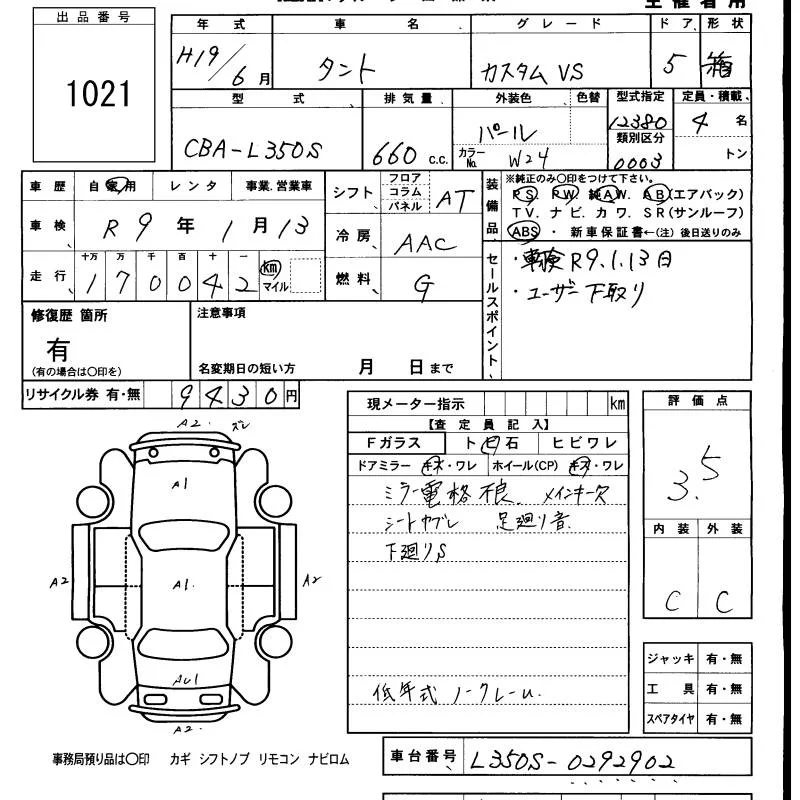 主催者用
出品番号
1021
年式 車名 グレード ドア 形状
H19/6月 タント カスタム VS 5 箱
型式 排気量 外装色 色替 型式指定 定員・積載
CBA-L350S 660 c.c. パール 12380 4名
カラーNo. W24 類別区分 0003 トン
車歴 自家用 レンタ 事業.営業車
車検 R9年1月13
走行 十万 万 千 百 十 一
170042 km マイル
シフト フロア コラム パネル AT
冷房 AAC
燃料 G
装備品 ※純正のみ○印をつけて下さい。
PS. PW. 純AW. AB(エアバック)
TV. ナビ. カワ. SR(サンルーフ)
ABS ・ 新車保証書←(注)後日送りのみ
セールスポイント
・車検R9.1.13日
・ユーザー下取り
修復歴 箇所
有
(有の場合は○印を)
注意事項
名変期日の短い方 月 日まで
リサイクル券 有・無 9430円
現メーター指示 km
【査定員記入】
Fガラス トビ石 ヒビワレ
ドアミラー キズ・ワレ ホイール(CP) キズ・ワレ
ミラー電格不良 メインキー欠
シートカブレ 足廻り音
下廻りS
低年式 ノークレーム.
評価点
3.5
内装 外装
C C
ジャッキ 有・無
工具 有・無
スペアタイヤ 有・無
A2. ズレ
A1
A2 A1. A2
AU1
A2.
事務局預り品は○印 カギ シフトノブ リモコン ナビロム
車台番号 L350S-0292902